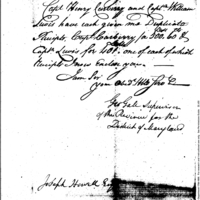 Capt. Henry Carberry and Capt. William
Lewis have each given me Duplicate
Receipts, Capt. Carberry for 300.60 &
Capt. Lewis for one of each of which
Receipts I now Enclose you
I am Sir
Your Obed. Hble
Geo Gale Supervisor
of the Revenue for the
District of Maryland
Joseph Howell Esq